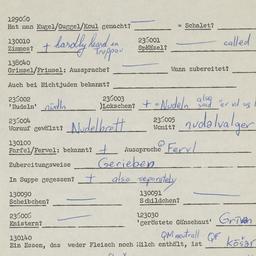 129060
Hat man Kugel/Guggel/Koul gemacht? — = Schalet?
130010 236001
Zimmes? + hardly heard in Spkësel? — called
138040
Grimsel/Frimsel: Aussprache? Wann zubereitet?
Auch bei Nichtjuden bekannt?
236002 236003 also
'Nudeln' nudln Lokschen? + = Nudeln said
236004 236005
Worauf gewälzt? Nudelbrett Womit? nudalvalger
130100
Farfel/Fervel: bekannt? + Aussprache Fervl
Zubereitungsweise Gerieben
In Suppe gegessen? + also separately
130090 130091
Scheibchen? — Schildchen? —
236006 123030
Knistern? — 'geröstete Grünschaut'
130140 QM neutrall QF
Ein Essen, das weder Fleisch noch Milch enthält, ist košər